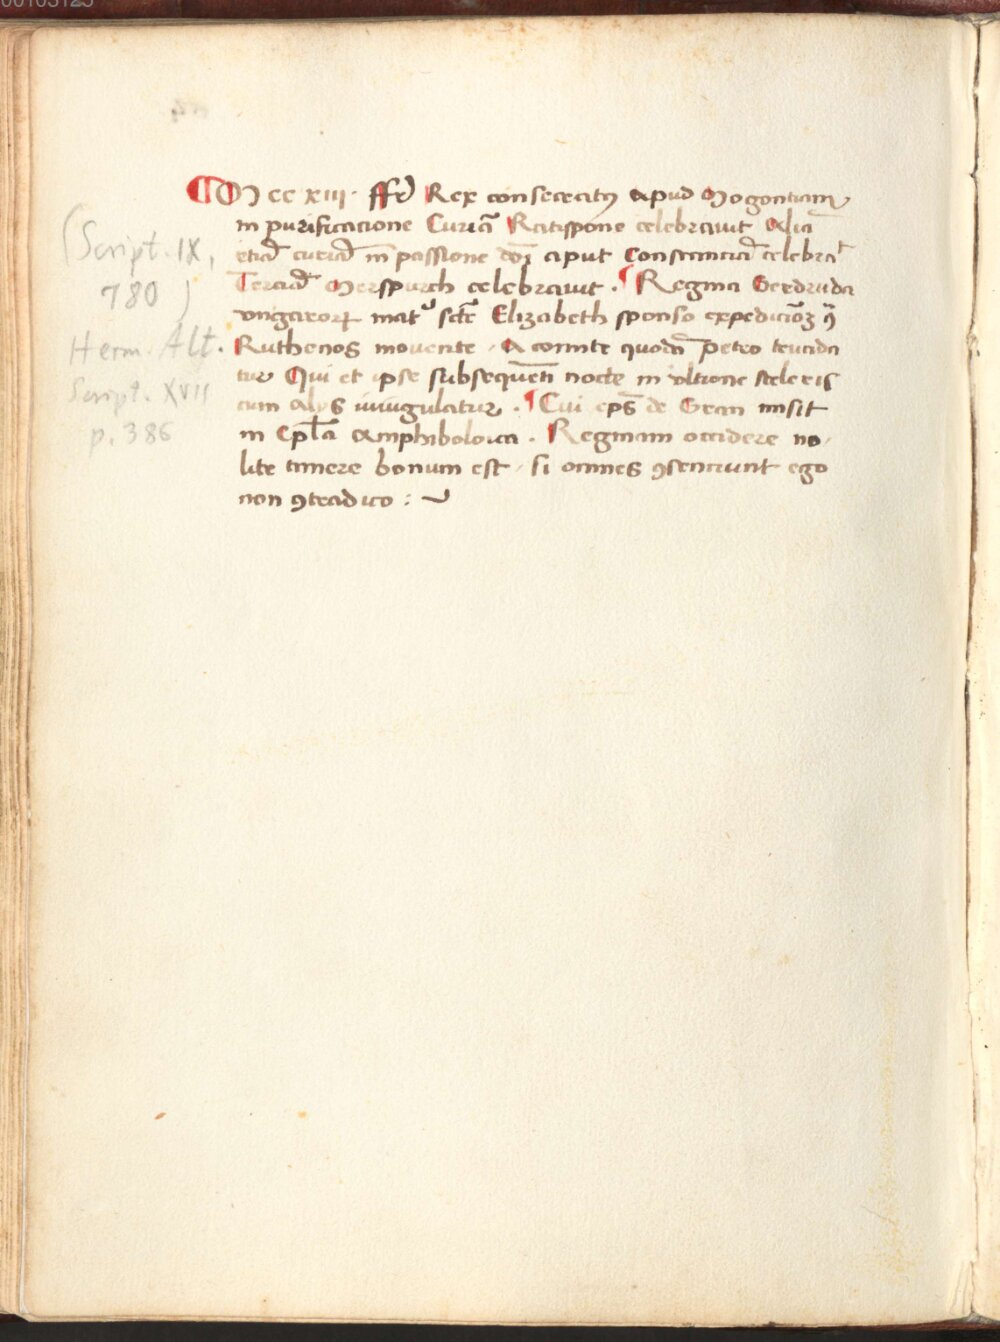 00103125
(Script. IX,
780)
Herm. Alt.
Script. XVII
p. 386
¶ M cc xiii · ffd̕ Rex consecratꝰ apud Mogontiam
in purificacione Curiā Ratispone celebrauit Aliā
etiā curiā in passione dn̄i aput Constanciā celebraͭ
Terciā Merspurch celebrauit · ¶ Regina Gerdruda
vngaroꝝ mat᷑ scē Elizabeth sponso expedicōꝫ
Ruthenos mouente · A comite quodā petro trucida
tur Qui et ipse subsequēti nocte in vltione sceleris
cum alijs iniugulatur · ¶ Cui ep̄s de Gran misit
in Ep̄la Amphiboloica · Reginam occidere no
lite timere bonum est · si omnes ꝯsenciunt ego
non ꝯtradico : ~